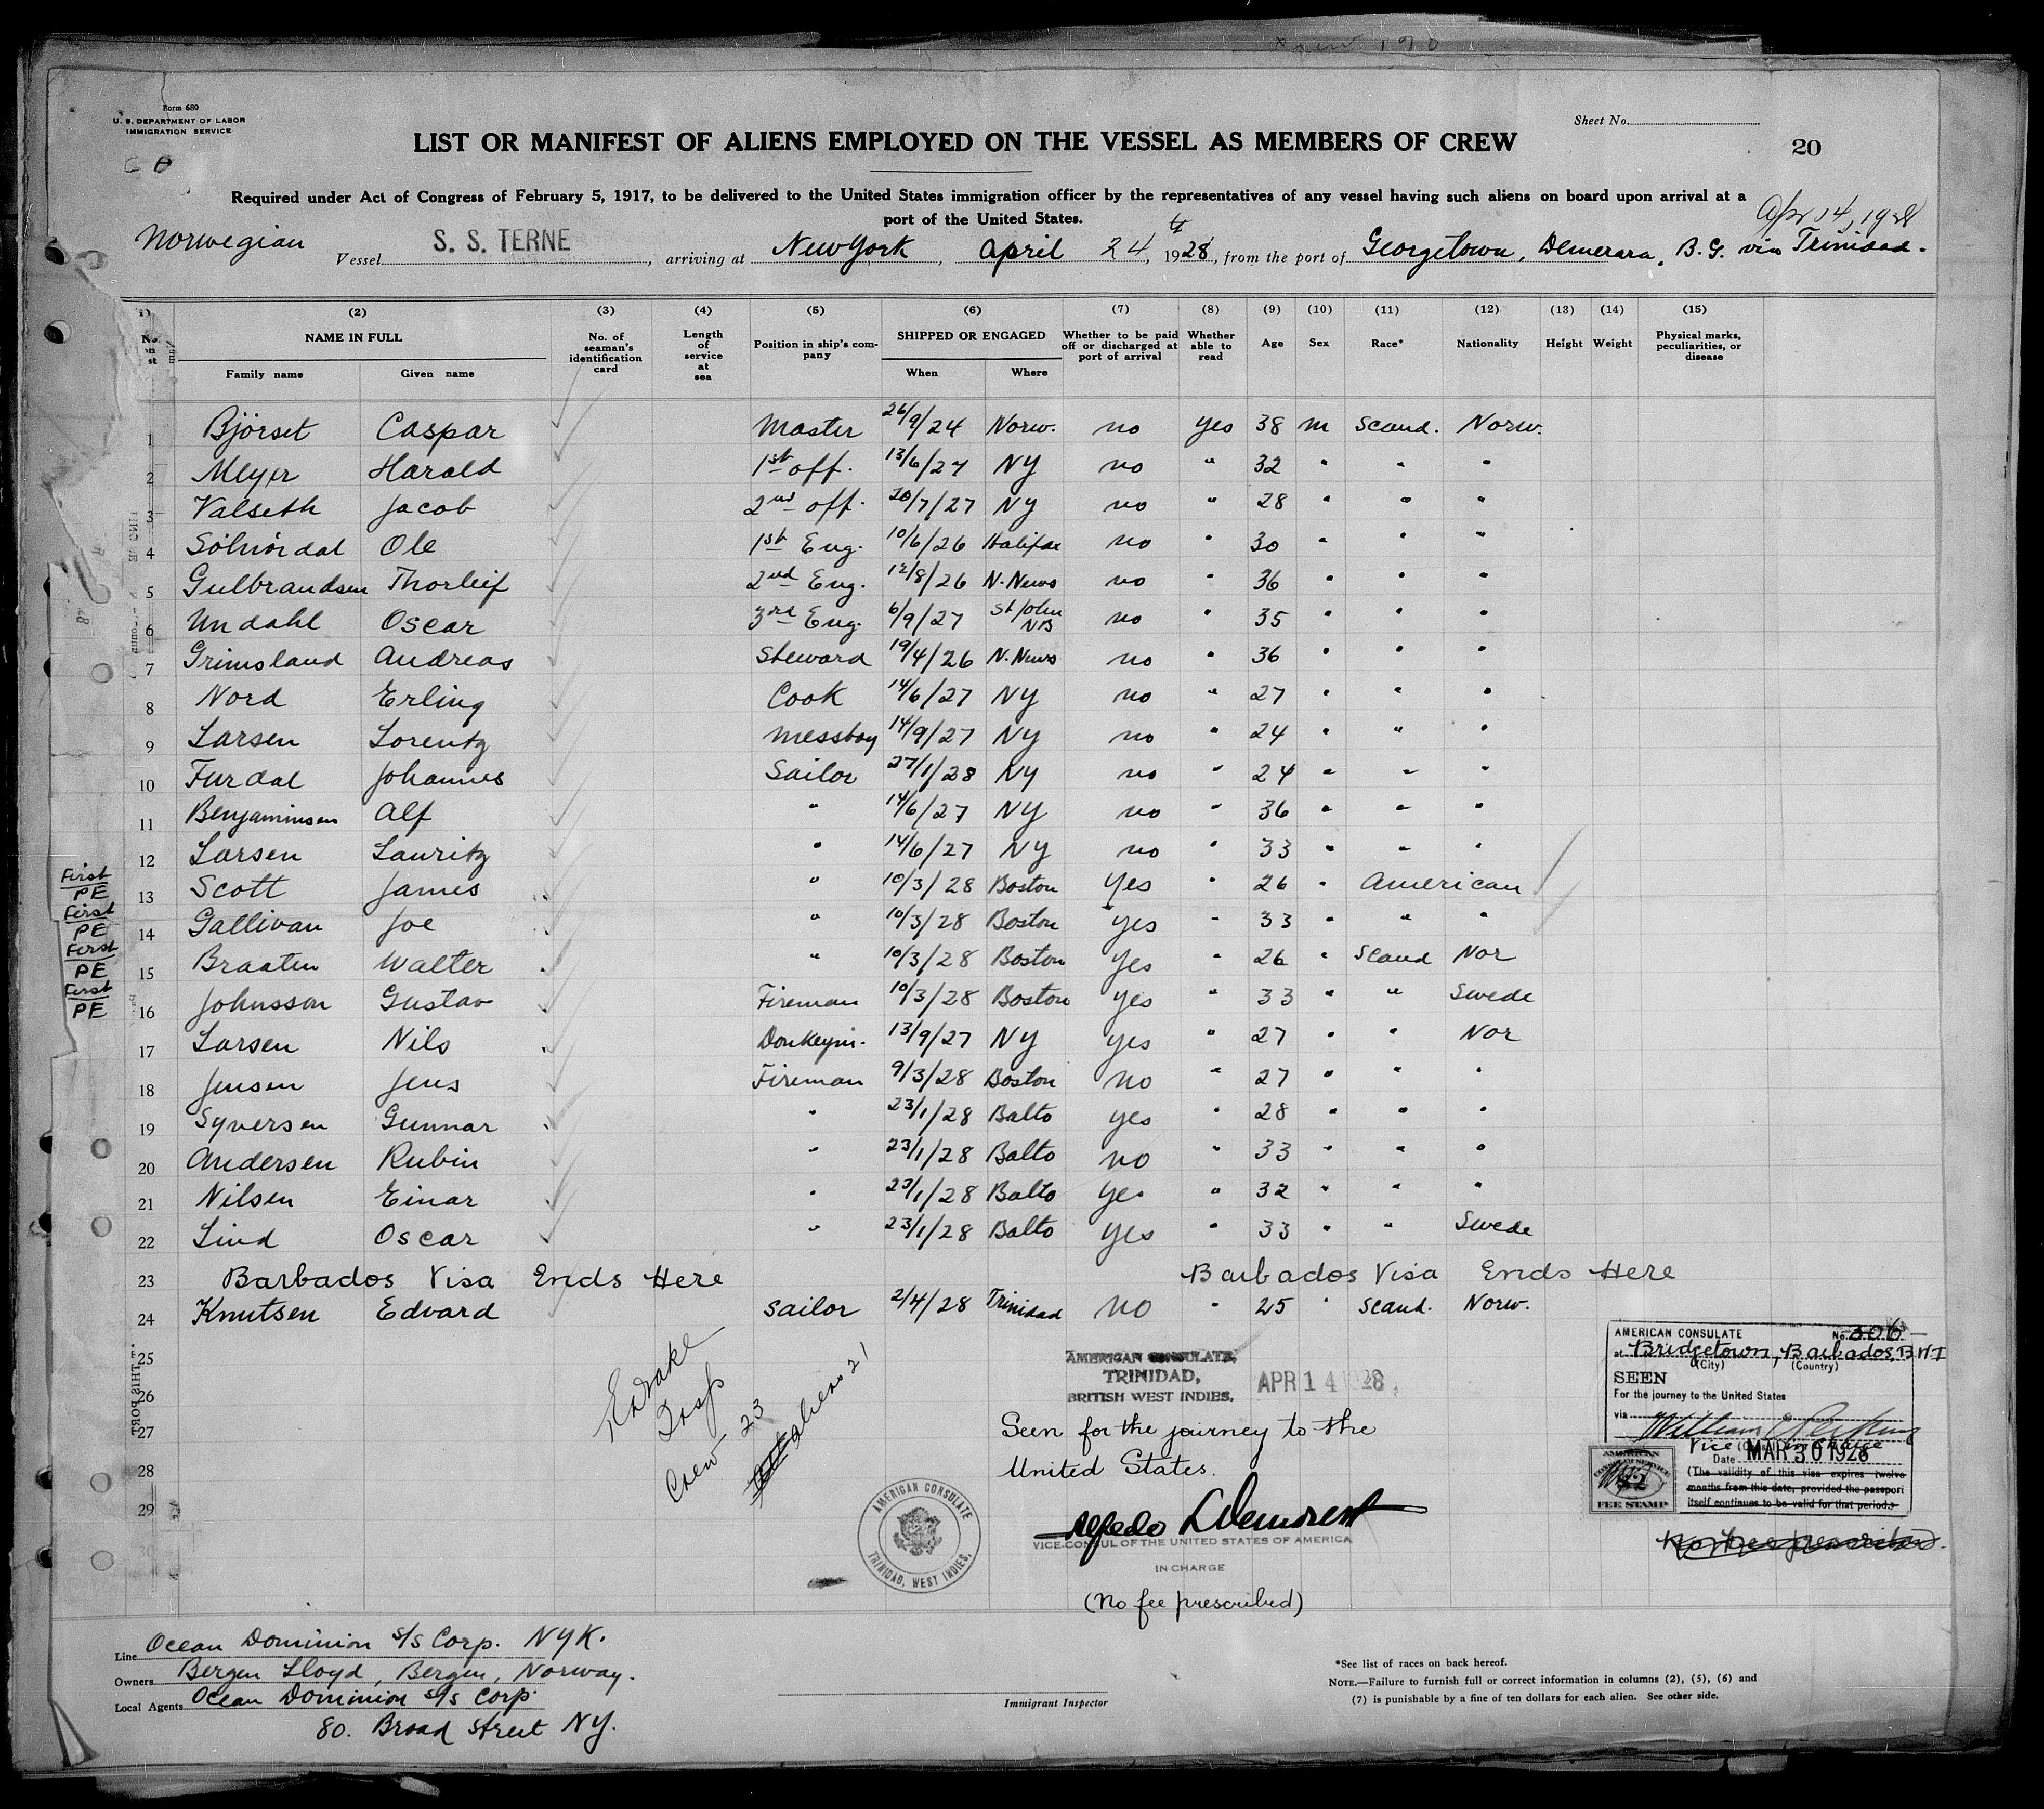 Form 680
U. S. DEPARTMENT OF LABOR
IMMIGRATION SERVICE
Sheet No.
LIST OR MANIFEST OF ALIENS EMPLOYED ON THE VESSEL AS MEMBERS OF CREW
20
Required under Act of Congress of February 5, 1917, to be delivered to the United States immigration officer by the representatives of any vessel having such aliens on board upon arrival at a
port of the United States.
Apr 14, 1928
Norwegian Vessel S. S. TERNE, arriving at New York, April 24, 1928, from the port of Georgetown, Demerara, B.G. via Trinidad.
(2) (3) (4) (5) (6) (7) (8) (9) (10) (11) (12) (13) (14) (15)
NAME IN FULL Family name Given name
No. of seaman's identification card
Length of service at sea
Position in ship's company
SHIPPED OR ENGAGED When Where
Whether to be paid off or discharged at port of arrival
Whether able to read
Age Sex Race* Nationality Height Weight
Physical marks, peculiarities, or disease
1 Björset Caspar Master 26/9/24 Norw. no yes 38 m Scand. Norw.
2 Meyer Harald 1st off. 13/6/27 NY no " 32 " " "
3 Valseth Jacob 2nd off. 20/7/27 NY no " 28 " " "
4 Ole 1st Eng. 10/6/26 Halifax no " 30 " " "
5 Gulbrandsen Thorleif 2nd Eng. 12/8/26 N. News no " 36 " " "
6 Undahl Oscar 3rd Eng. 6/9/27 St John NB no " 35 " " "
7 Grimsland Andreas Steward 19/4/26 N. News no " 36 " " "
8 Nord Erling Cook 14/6/27 NY no " 27 " " "
9 Larsen Lorentz Messboy 14/9/27 NY no " 24 " " "
10 Furdal Johannes Sailor 27/1/28 NY no " 24 " " "
11 Benjaminsen Alf " 14/6/27 NY no " 36 " " "
12 Larsen Lauritz " 14/6/27 NY no " 33 " " "
First PE 13 Scott James " 10/3/28 Boston Yes " 26 " American
First PE 14 Gallivan Joe " 10/3/28 Boston yes " 33 " " "
First PE 15 Braaten Walter " 10/3/28 Boston Yes " 26 " Scand Nor
First PE 16 Johnsson Gustav Fireman 10/3/28 Boston yes " 33 " " Swede
17 Larsen Nils Donkeym. 13/9/27 NY yes " 27 " " Nor
18 Jensen Jens Fireman 9/3/28 Boston no " 27 " " "
19 Syversen Gunnar " 23/1/28 Balto yes " 28 " " "
20 Andersen Rubin " 23/1/28 Balto no " 33 " " "
21 Nilsen Einar " 23/1/28 Balto yes " 32 " " "
22 Lind Oscar " 23/1/28 Balto yes " 33 " " Swede
23 Barbados Visa Ends Here Barbados Visa Ends Here
24 Knutsen Edvard Sailor 2/4/28 Trinidad no " 25 " Scand. Norw.
25
26
27
28
29
30
THIS PORT
Drake
Insp
Crew 23
aliens 21
AMERICAN CONSULATE,
TRINIDAD,
BRITISH WEST INDIES.
APR 14 1928
Seen for the journey to the
United States.
Alfredo L Demorest
VICE-CONSUL OF THE UNITED STATES OF AMERICA
IN CHARGE
(No fee prescribed)
AMERICAN CONSULATE
TRINIDAD, WEST INDIES.
AMERICAN CONSULATE No. 306
at Bridgetown, Barbados, BWI
(City) (Country)
SEEN
For the journey to the United States
via
William
Vice in charge
Date MAR 30 1928
(The validity of this visa expires twelve
months from this date, provided the passport
itself continues to be valid for that period.)
AMERICAN
CONSULAR SERVICE
$2
FEE STAMP
No fee prescribed.
Line Ocean Dominion S/S Corp. NYK.
Owners Bergen Lloyd, Bergen, Norway.
Local Agents Ocean Dominion S/S Corp.
80. Broad Street NY.
Immigrant Inspector
*See list of races on back hereof.
NOTE.—Failure to furnish full or correct information in columns (2), (5), (6) and
(7) is punishable by a fine of ten dollars for each alien. See other side.